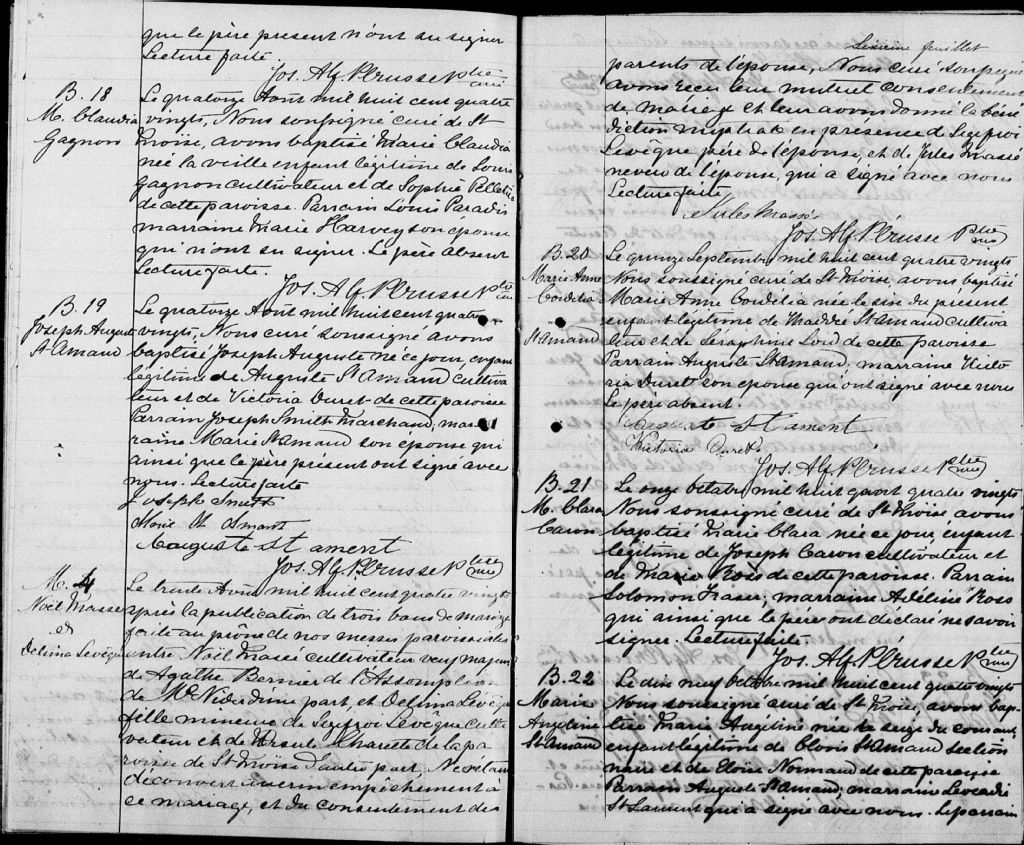 que le père present n'ont su signer
Lecture faite.
Jos. Alf. Pérusse Ptre
curé
B. 18
M. Claudia
Gagnon
Le quatorze Août mil huit cent quatre
vingts, Nous soussigné curé de St
Moïse, avons baptisé Marie Claudia
née la veille enfant légitime de Louis
Gagnon cultivateur et de Sophie Pelletier
de cette paroisse. Parrain Louis Paradis
marraine Marie Harvey son épouse
qui n'ont su signer. Le père absent
Lecture faite.
Jos. Alf. Pérusse Ptre
curé
B. 19
Joseph Auguste
St Amand
Le quatorze Aout mil huit cent quatre
vingts, Nous curé soussigné avons
baptisé Joseph Auguste né ce jour, enfant
légitime de Auguste St Amand cultiva
teur et de Victoria Duret de cette paroisse
Parrain Joseph Smith Marchand, mar
raine Marie St Amand son épouse qui
ainsi que le père présent ont signé avec
nous. Lecture faite
Joseph Smith
Marie St Amant
Auguste St ament
Jos. Alf. Pérusse Ptre
curé
M. 4
Noël Massé
et
Delima Levêque
Le trente Août mil huit cent quatre vingts
après la publication de trois bans de mariage
faite au prône de nos messes paroissiales
entre Noël Massé cultivateur veuf majeur
de Agathe Bernier de l'Assomption
de McNider d'une part, et Delima Levêque
fille mineure de Segfroi Levêque culti
vateur et de Ursule Charette de la pa
roisse de St Moïse d'autre part, Ne s'étant
découvert aucun empêchement à
ce mariage, et du consentement des
Sixième feuillet
parents de l'épouse, Nous curé soussigné
avons reçu leur mutuel consentement
de mariage et leur avons donné la béné
diction nuptiale en présence de Segfroi
Levêque père de l'épouse, et de Jules Massé
neveu de l'époux, qui a signé avec nous
Lecture faite
Jules Massé
Jos. Alf. Pérusse Ptre
curé
B. 20
Marie Anne
Cordelia
St Amand
Le quinze Septembre mil huit cent quatre vingts
Nous soussigné curé de St Moïse, avons baptisé
Marie Anne Cordelia née le six du présent
enfant légitime de Maddé St Amand cultiva
teur et de Séraphine Lord de cette paroisse
Parrain Auguste St Amand, marraine Victo
ria Durett son épouse qui ont signé avec nous
Le père absent.
Auguste St ament
Victoria Duret
Jos. Alf. Pérusse Ptre
curé
B. 21
M. Clara
Caron
Le onze Octobre mil huit cent quatre vingts
Nous soussigné curé de St Moïse avons
baptisé Marie Clara née ce jour, enfant
légitime de Joseph Caron cultivateur et
de Marie Ross de cette paroisse. Parrain
Solomon Fraser, marraine Adéline Ross
qui ainsi que le père ont déclaré ne savoir
signer. Lecture faite.
Jos. Alf. Pérusse Ptre
curé
B. 22
Marie
Angeline
St Amand
Le dix neuf Octobre mil huit cent quatre vingts
Nous soussigné curé de St Moïse, avons bap-
tisé Marie Angéline née le seize du courant,
enfant légitime de Clovis St Amand Section
naire et de Eloïse Normand de cette paroisse
Parrain Auguste St Amand, marraine Leocadi
St Laurent qui a signé avec nous. Le parrain